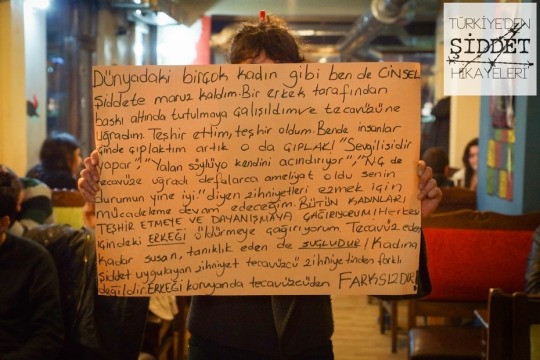 TÜRKİYEDEN
ŞİDDET
HİKAYELERİ
Dünyadaki birçok kadın gibi ben de CİNSEL
Şiddete maruz kaldım. Bir erkek tarafından
baskı altında tutulmaya çalışıldım ve tecavüzüne
uğradım. Teşhir ettim, teşhir oldum. Bende insanlar
içinde çıplaktım artık o da ÇIPLAK! "Sevgilisidir
yapar", "Yalan söylüyo kendini acındırıyor", "NÇ de
tecavüze uğradı defalarca ameliyat oldu senin
durumun yine iyi" diyen zihniyetleri ezmek için
mücadeleme devam edeceğim. BÜTÜN KADINLARI
TEŞHİR ETMEYE VE DAYANIŞMAYA ÇAĞIRIYORUM! Herkesi
içindeki ERKEĞİ öldürmeye çağırıyorum. Tecavüz eden
kadar susan, tanıklık eden de SUÇLUDUR! Kadına
Şiddet uygulayan zihniyet tecavüzcü zihniyetinden farklı
değildir. ERKEĞİ koruyanda tecavüzcüden FARKSIZDIR!